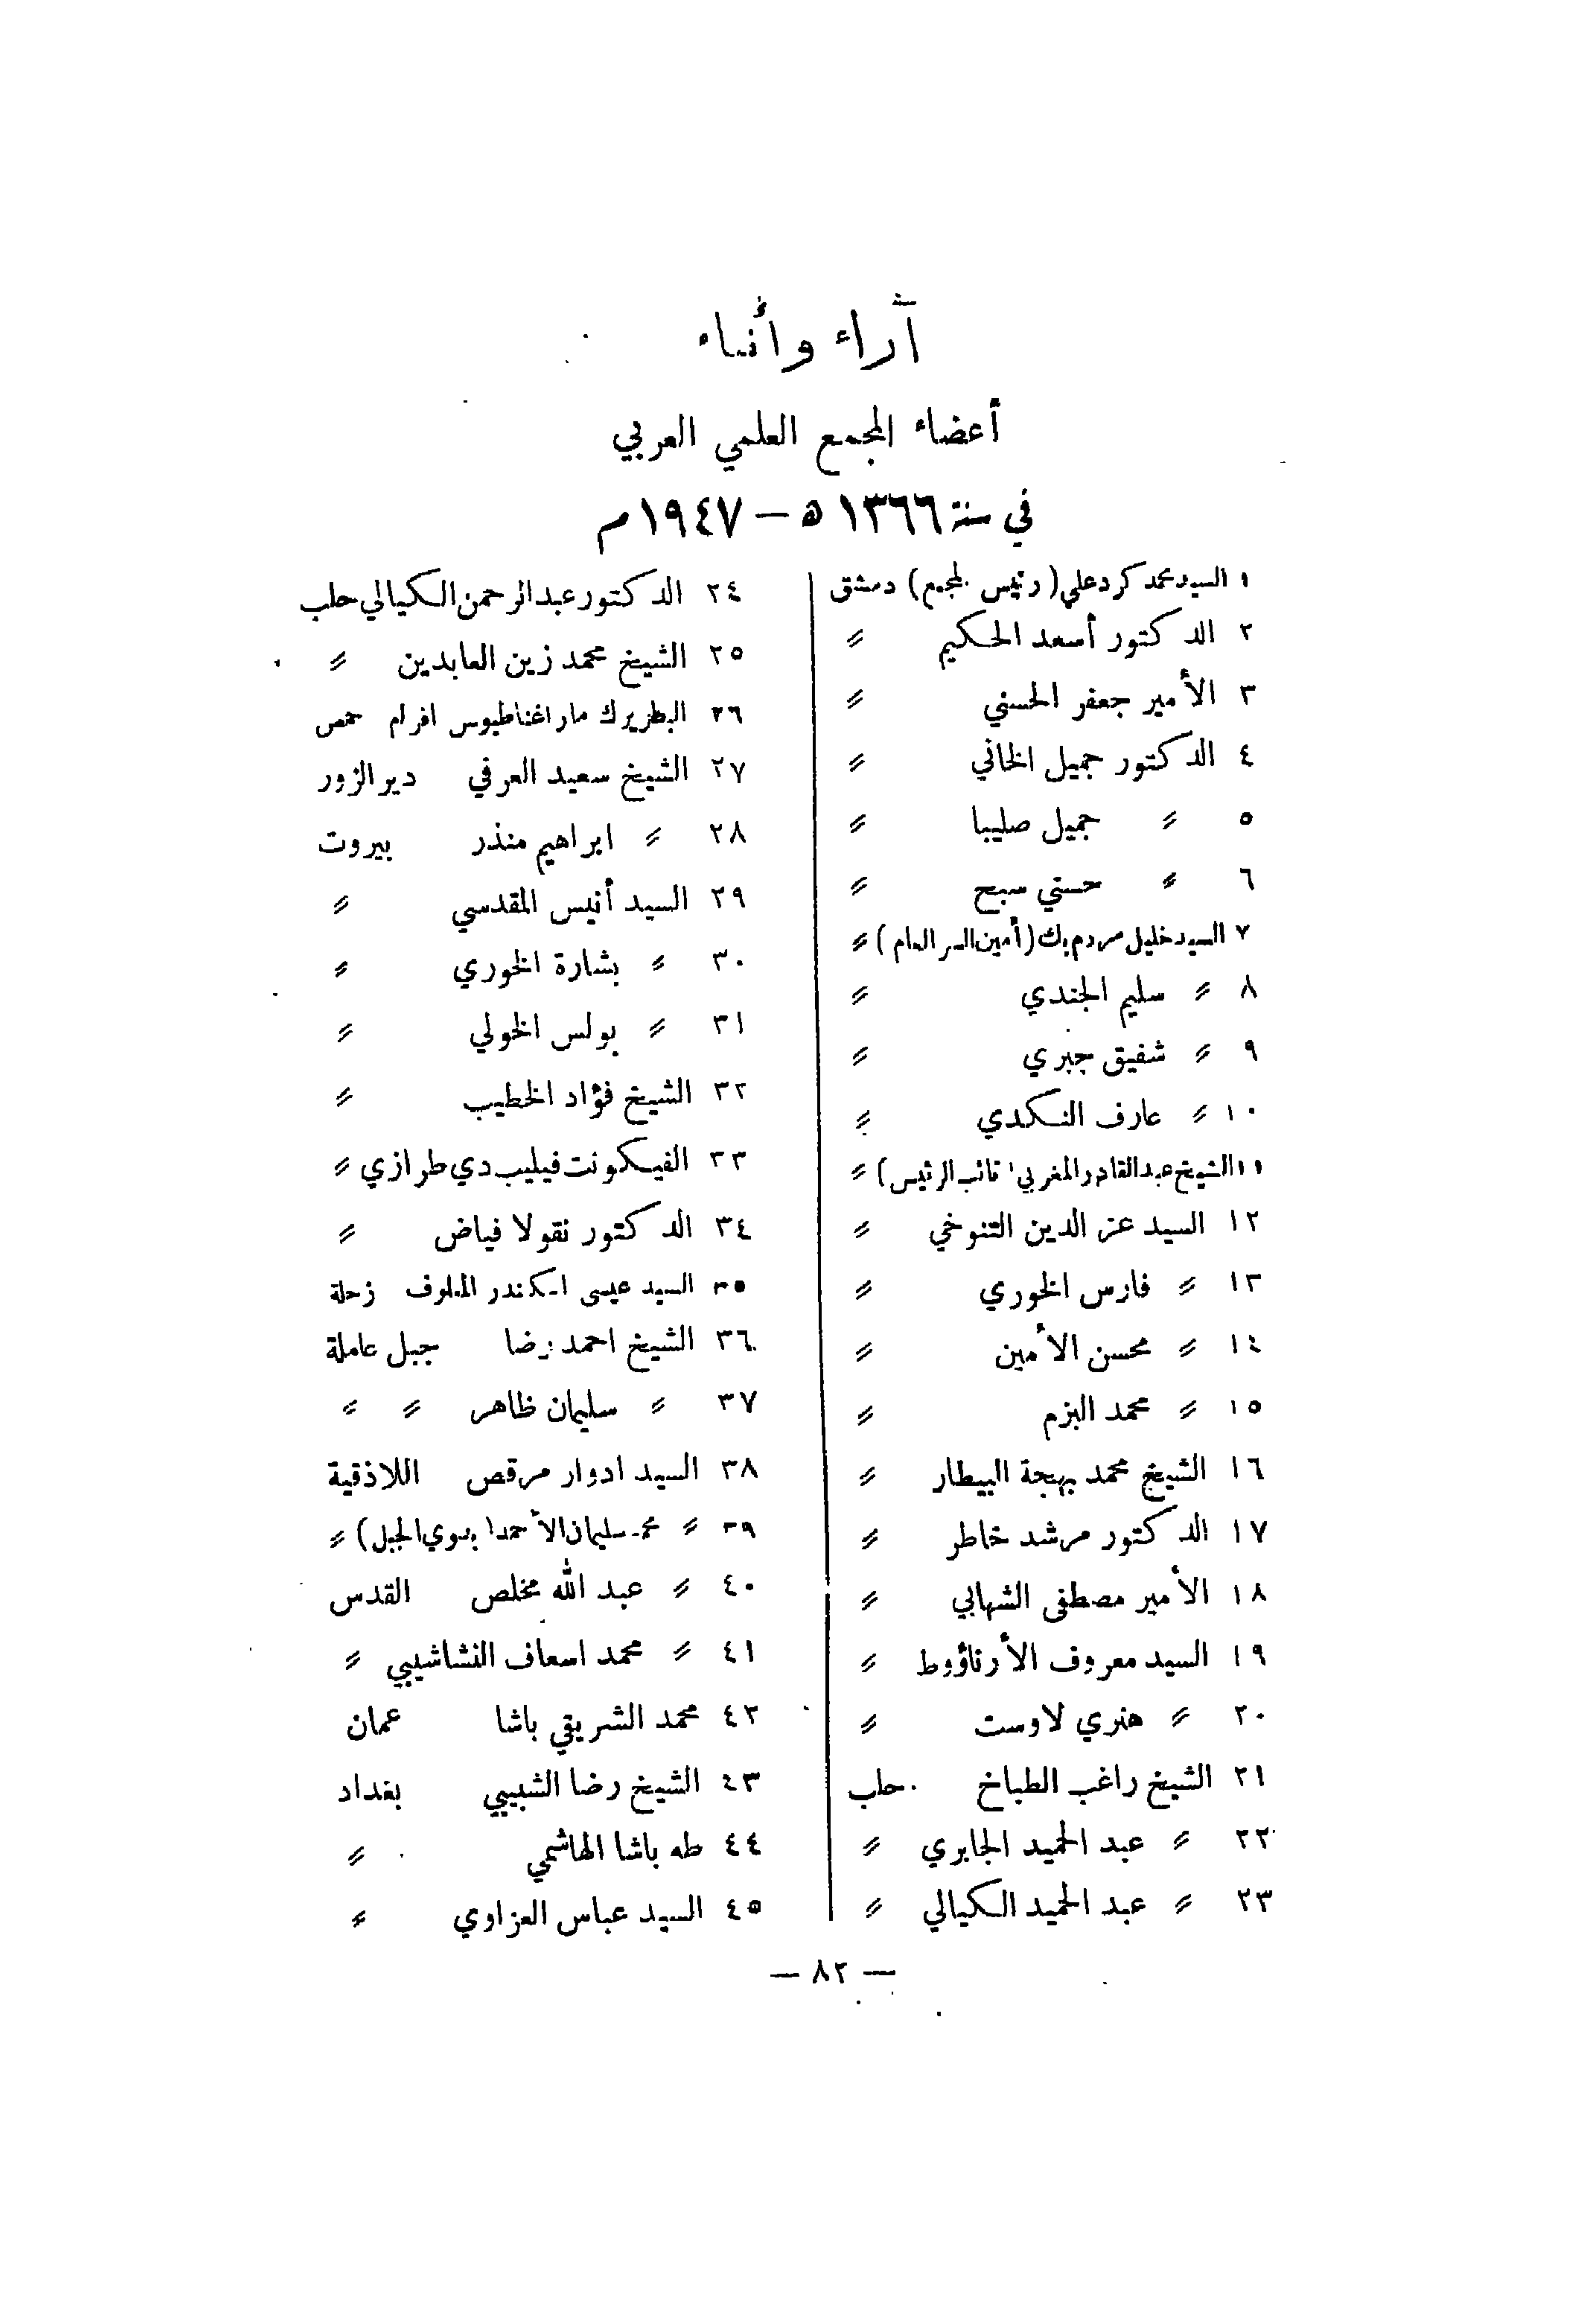 آراء وأنباء
أعضاء المجمع العلمي العربي
في سنة ١٣٦٦ ه – ١٩٤٧ م
١ السيد محمد كرد علي (رئيس المجمع) دمشق
٢ الدكتور أسعد الحكيم »
٣ الأمير جعفر الحسني »
٤ الدكتور جميل الخاني »
٥ » جميل صليبا »
٦ » حسني سبح »
٧ السيد خليل مردم بك (أمين السر العام) »
٨ » سليم الجندي »
٩ » شفيق جبري »
١٠ » عارف النكدي »
١١ الشيخ عبد القادر المغربي (نائب الرئيس) »
١٢ السيد عز الدين التنوخي »
١٣ » فارس الخوري »
١٤ » محسن الأمين »
١٥ » محمد البزم »
١٦ الشيخ محمد بهجة البيطار »
١٧ الدكتور مرشد خاطر »
١٨ الأمير مصطفى الشهابي »
١٩ السيد معروف الأرناؤوط »
٢٠ » هنري لاوست »
٢١ الشيخ راغب الطباخ حلب
٢٢ » عبد الحميد الجابري »
٢٣ » عبد الحميد الكيالي »
٢٤ الدكتور عبد الرحمن الكيالي حلب
٢٥ الشيخ محمد زين العابدين »
٢٦ البطريرك مار اغناطيوس افرام حمص
٢٧ الشيخ سعيد العرفي دير الزور
٢٨ » ابراهيم منذر بيروت
٢٩ السيد أنيس المقدسي »
٣٠ » بشارة الخوري »
٣١ » بولس الخولي »
٣٢ الشيخ فؤاد الخطيب »
٣٣ الفيكونت فيليب دي طرازي »
٣٤ الدكتور نقولا فياض »
٣٥ السيد عيسى اسكندر المعلوف زحلة
٣٦ الشيخ احمد رضا جبل عاملة
٣٧ » سليمان ظاهر » »
٣٨ السيد ادوار مرقص اللاذقية
٣٩ » محمد سليمان الأحمد (بدوي الجبل) »
٤٠ » عبد الله مخلص القدس
٤١ » محمد اسعاف النشاشيبي »
٤٢ محمد الشريقي باشا عمان
٤٣ الشيخ رضا الشبيبي بغداد
٤٤ طه باشا الهاشمي »
٤٥ السيد عباس العزاوي »
— ٨٢ —